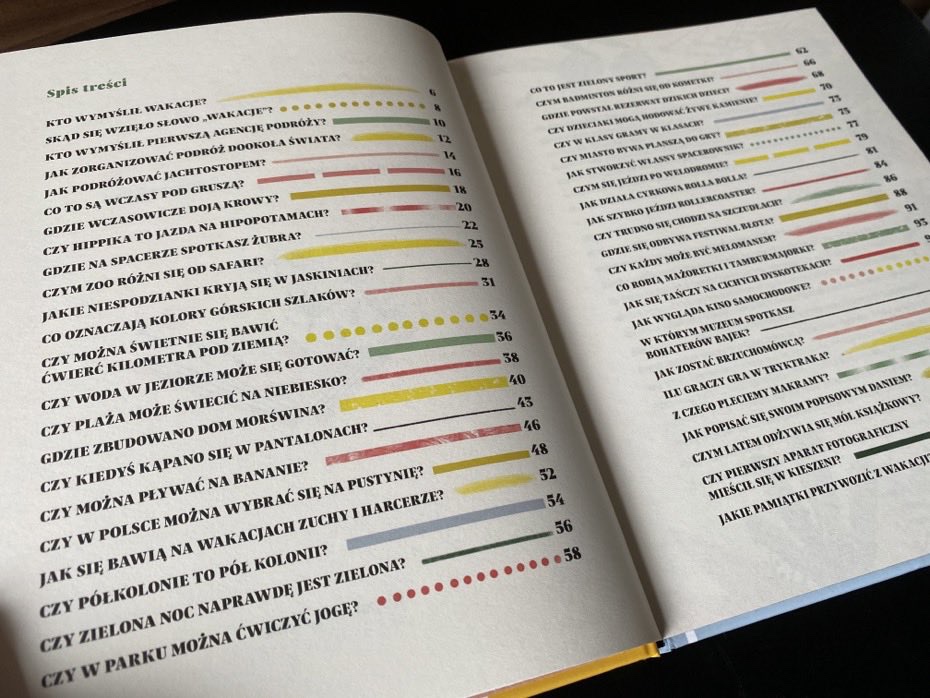 Spis treści
KTO WYMYŚLIŁ WAKACJE? 6
SKĄD SIĘ WZIĘŁO SŁOWO „WAKACJE”? 8
KTO WYMYŚLIŁ PIERWSZĄ AGENCJĘ PODRÓŻY? 10
JAK ZORGANIZOWAĆ PODRÓŻ DOOKOŁA ŚWIATA? 12
JAK PODRÓŻOWAĆ JACHTOSTOPEM? 14
CO TO SĄ WCZASY POD GRUSZĄ? 16
GDZIE WCZASOWICZE DOJĄ KROWY? 18
CZY HIPPIKA TO JAZDA NA HIPOPOTAMACH? 20
GDZIE NA SPACERZE SPOTKASZ ŻUBRA? 22
CZYM ZOO RÓŻNI SIĘ OD SAFARI? 25
JAKIE NIESPODZIANKI KRYJĄ SIĘ W JASKINIACH? 28
CO OZNACZAJĄ KOLORY GÓRSKICH SZLAKÓW? 31
CZY MOŻNA ŚWIETNIE SIĘ BAWIĆ
ĆWIERĆ KILOMETRA POD ZIEMIĄ? 34
CZY WODA W JEZIORZE MOŻE SIĘ GOTOWAĆ? 36
CZY PLAŻA MOŻE ŚWIECIĆ NA NIEBIESKO? 38
GDZIE ZBUDOWANO DOM MORŚWINA? 40
CZY KIEDYŚ KĄPANO SIĘ W PANTALONACH? 43
CZY MOŻNA PŁYWAĆ NA BANANIE? 46
CZY W POLSCE MOŻNA WYBRAĆ SIĘ NA PUSTYNIĘ? 48
JAK SIĘ BAWIĄ NA WAKACJACH ZUCHY I HARCERZE? 52
CZY PÓŁKOLONIE TO PÓŁ KOLONII? 54
CZY ZIELONA NOC NAPRAWDĘ JEST ZIELONA? 56
CZY W PARKU MOŻNA ĆWICZYĆ JOGĘ? 58
CO TO JEST ZIELONY SPORT? 62
CZYM BADMINTON RÓŻNI SIĘ OD KOMETKI? 66
GDZIE POWSTAŁ REZERWAT DZIKICH DZIECI? 68
CZY DZIECIAKI MOGĄ HODOWAĆ ŻYWE KAMIENIE? 70
CZY W KLASY GRAMY W KLASACH? 73
CZY MIASTO BYWA PLANSZĄ DO GRY? 75
JAK STWORZYĆ WŁASNY SPACEROWNIK? 77
CZYM SIĘ JEŹDZI PO WELODROMIE? 79
JAK DZIAŁA CYRKOWA ROLLA BOLLA? 81
JAK SZYBKO JEŹDZI ROLLERCOASTER? 84
CZY TRUDNO SIĘ CHODZI NA SZCZUDŁACH? 86
GDZIE SIĘ ODBYWA FESTIWAL BŁOTA? 88
CZY KAŻDY MOŻE BYĆ MELOMANEM? 91
CO ROBIĄ MAŻORETKI I TAMBURMAJORKI? 93
JAK SIĘ TAŃCZY NA CICHYCH DYSKOTEKACH?
JAK WYGLĄDA KINO SAMOCHODOWE?
W KTÓRYM MUZEUM SPOTKASZ
BOHATERÓW BAJEK?
JAK ZOSTAĆ BRZUCHOMÓWCĄ?
ILU GRACZY GRA W TRYKTRAKA?
Z CZEGO PLECIEMY MAKRAMY?
JAK POPISAĆ SIĘ SWOIM POPISOWYM DANIEM?
CZYM LATEM ODŻYWIA SIĘ MÓL KSIĄŻKOWY?
CZY PIERWSZY APARAT FOTOGRAFICZNY
MIEŚCIŁ SIĘ W KIESZENI?
JAKIE PAMIĄTKI PRZYWOZIĆ Z WAKACJI